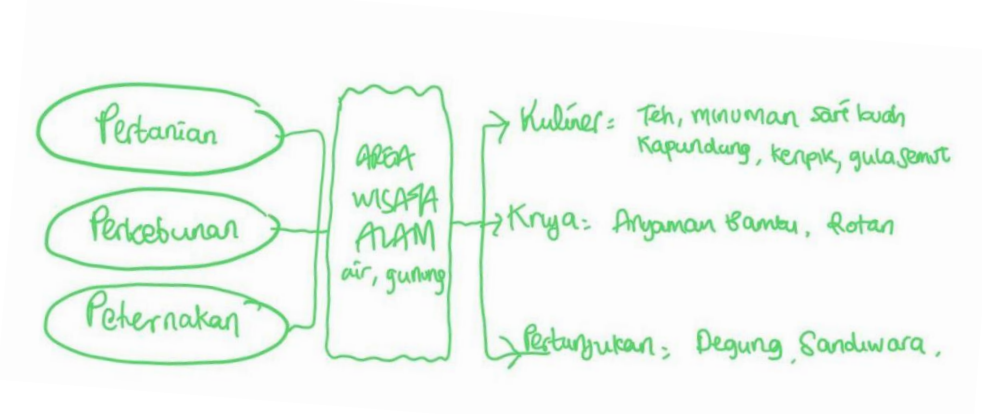 Pertanian
Perkebunan
Peternakan
AREA
WISATA
ALAM
air, gunung
Kuliner: Teh, minuman sari buah
Kapundung, keripik, gula semut
Krya: Anyaman Bambu, Rotan
Pertunjukan: Degung, Sandiwara,